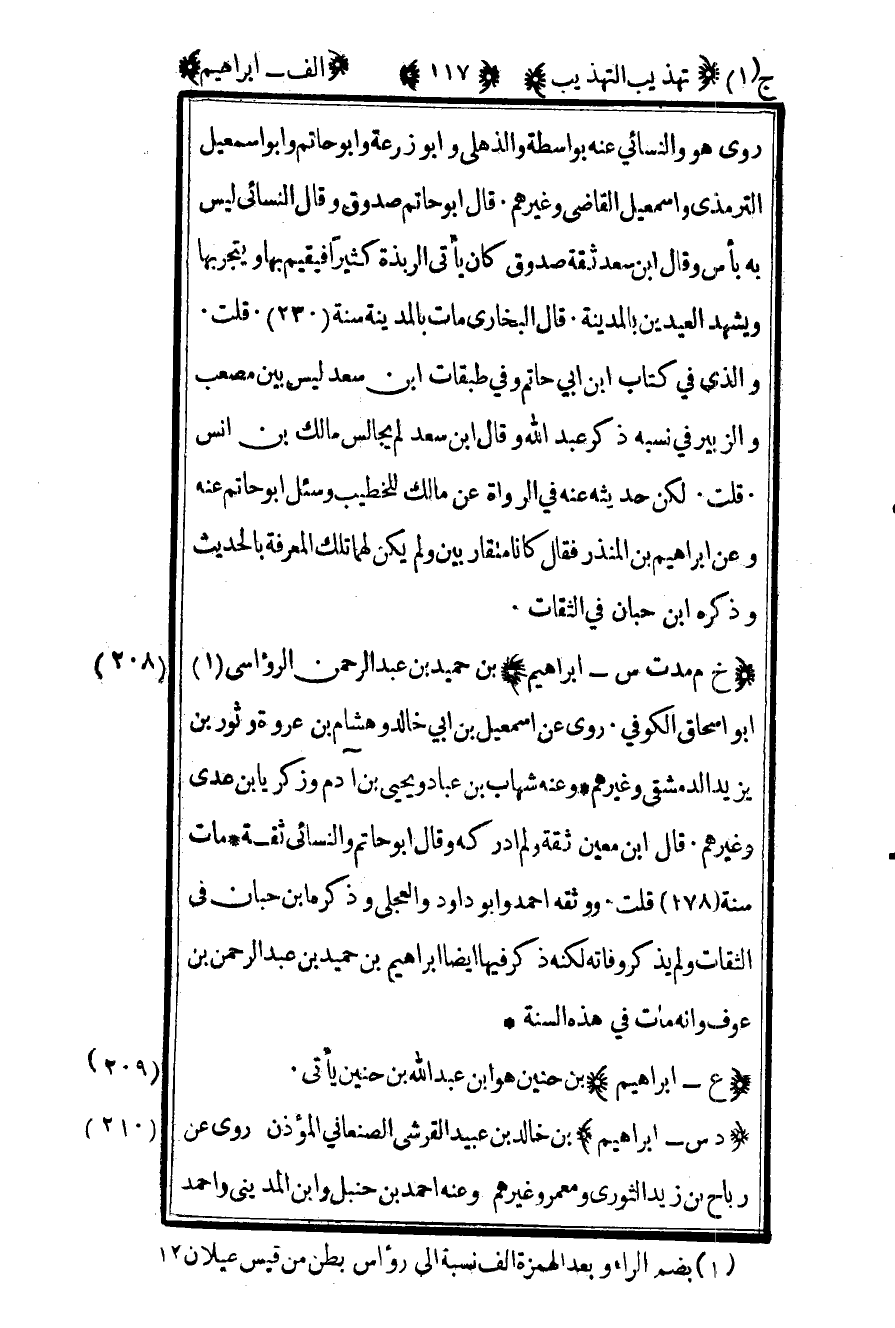 ج(١) ﴿ تهذيب التهذيب ﴾ ﴿ ١١٧ ﴾ ﴿ الف ــ ابراهيم ﴾
روى هو والنسائي عنه بواسطة والذهلى و ابو زرعة وابوحاتم وابو اسمعيل
الترمذى و اسمعيل القاضى وغيرهم ٠ قال ابوحاتم صدوق و قال النسائى ليس
به بأس وقال ابن سعد ثقة صدوق كان يأتى الربذة كثيراً فيقيم بها و يتجر بها
ويشهد العيدين بالمدينة ٠ قال البخارى مات بالمدينة سنة (٢٣٠) ٠ قلت ٠
و الذى في كتاب ابن ابي حاتم و في طبقات ابن سعد ليس بين مصعب
و الزبير في نسبه ذكر عبد الله و قال ابن سعد لم يجالس مالك بن انس
٠ قلت ٠ لكن حديثه عنه في الرواة عن مالك للخطيب وسئل ابوحاتم عنه
و عن ابراهيم بن المنذر فقال كانا متقاربين ولم يكن لهما تلك المعرفة بالحديث
و ذكره ابن حبان في الثقات ٠
﴿ خ م مدت س ــ ابراهيم ﴾ بن حميد بن عبدالرحمن الرؤاسى (١) (٢٠٨)
ابو اسحاق الكوفي ٠ روى عن اسمعيل بن ابي خالد و هشام بن عروة و ثور بن
يزيد الدمشقى وغيرهم * وعنه شهاب بن عباد ويحيى بن آدم وزكريا بن عدى
وغيرهم ٠ قال ابن معين ثقة ولم ادركه وقال ابوحاتم والنسائى ثقة * مات
سنة (١٧٨) قلت ٠ ووثقه احمد وابو داود والعجلى و ذكره ابن حبان فى
الثقات ولم يذكر وفاته لكنه ذكر فيها ايضا ابراهيم بن حميد بن عبدالرحمن بن
عوف وانه مات في هذه السنة *
﴿ ع ــ ابراهيم ﴾ بن حنين هو ابن عبدالله بن حنين يأتى ٠ (٢٠٩)
﴿ د س ــ ابراهيم ﴾ بن خالد بن عبيد القرشى الصنعاني المؤذن روى عن (٢١٠)
رباح بن زيد الثورى و معمر وغيرهم وعنه احمد بن حنبل وابن المدينى واحمد
(١) بضم الراء و بعد الهمزة الف نسبة الى رؤاس بطن من قيس عيلان ١٢